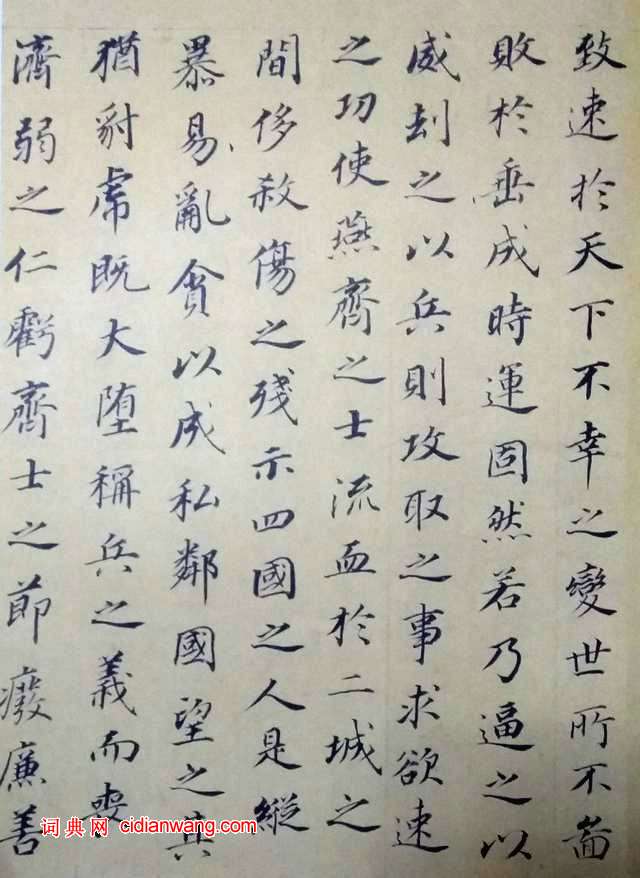 致速於天下不幸之變世所不啚
敗於垂成時運固然若乃逼之以
威刦之以兵則攻取之事求欲速
之功使燕齊之士流血於二城之
間侈殺傷之殘示四國之人是縱
暴易亂貪以成私鄰國望之其
猶豺虎既大墮稱兵之義而喪
濟弱之仁虧齊士之節廢廉善
词典网 cidianwang.com